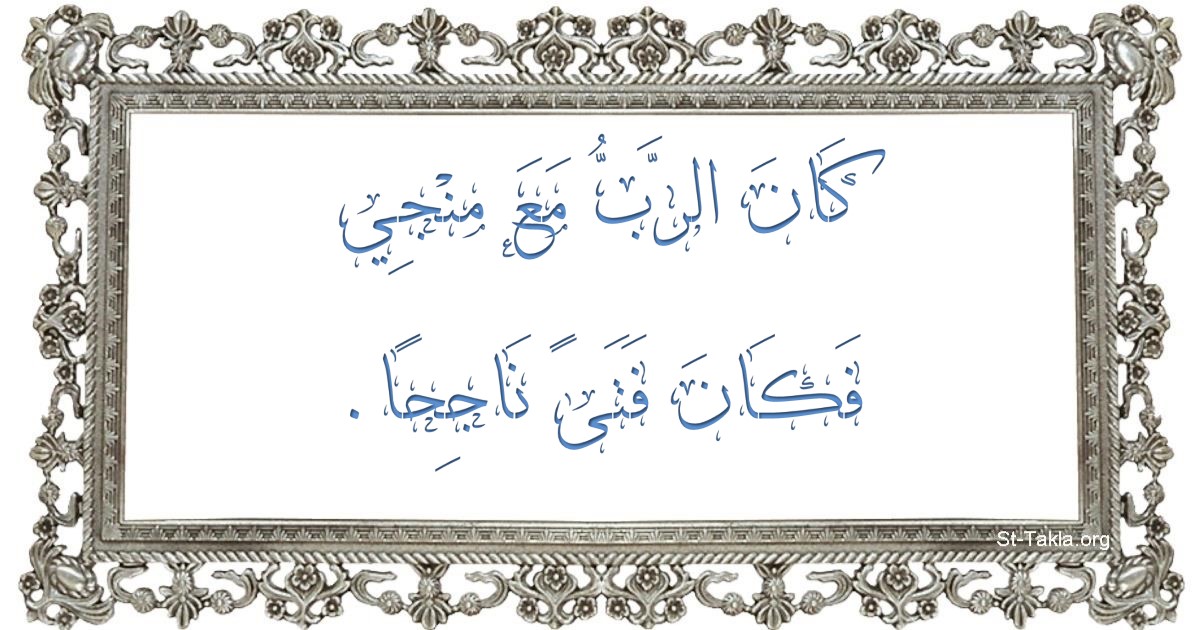 كَانَ الرَّبُّ مَعَ مُنْجِي
فَكَانَ فَتَىً نَاجِحًا.
St-Takla.org